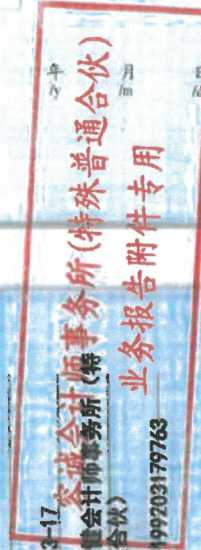 年 月
/y /m
容诚会计师事务所(特殊普通合伙)
业务报告附件专用
3-17
会计师事务所（特
合伙）
199203179763